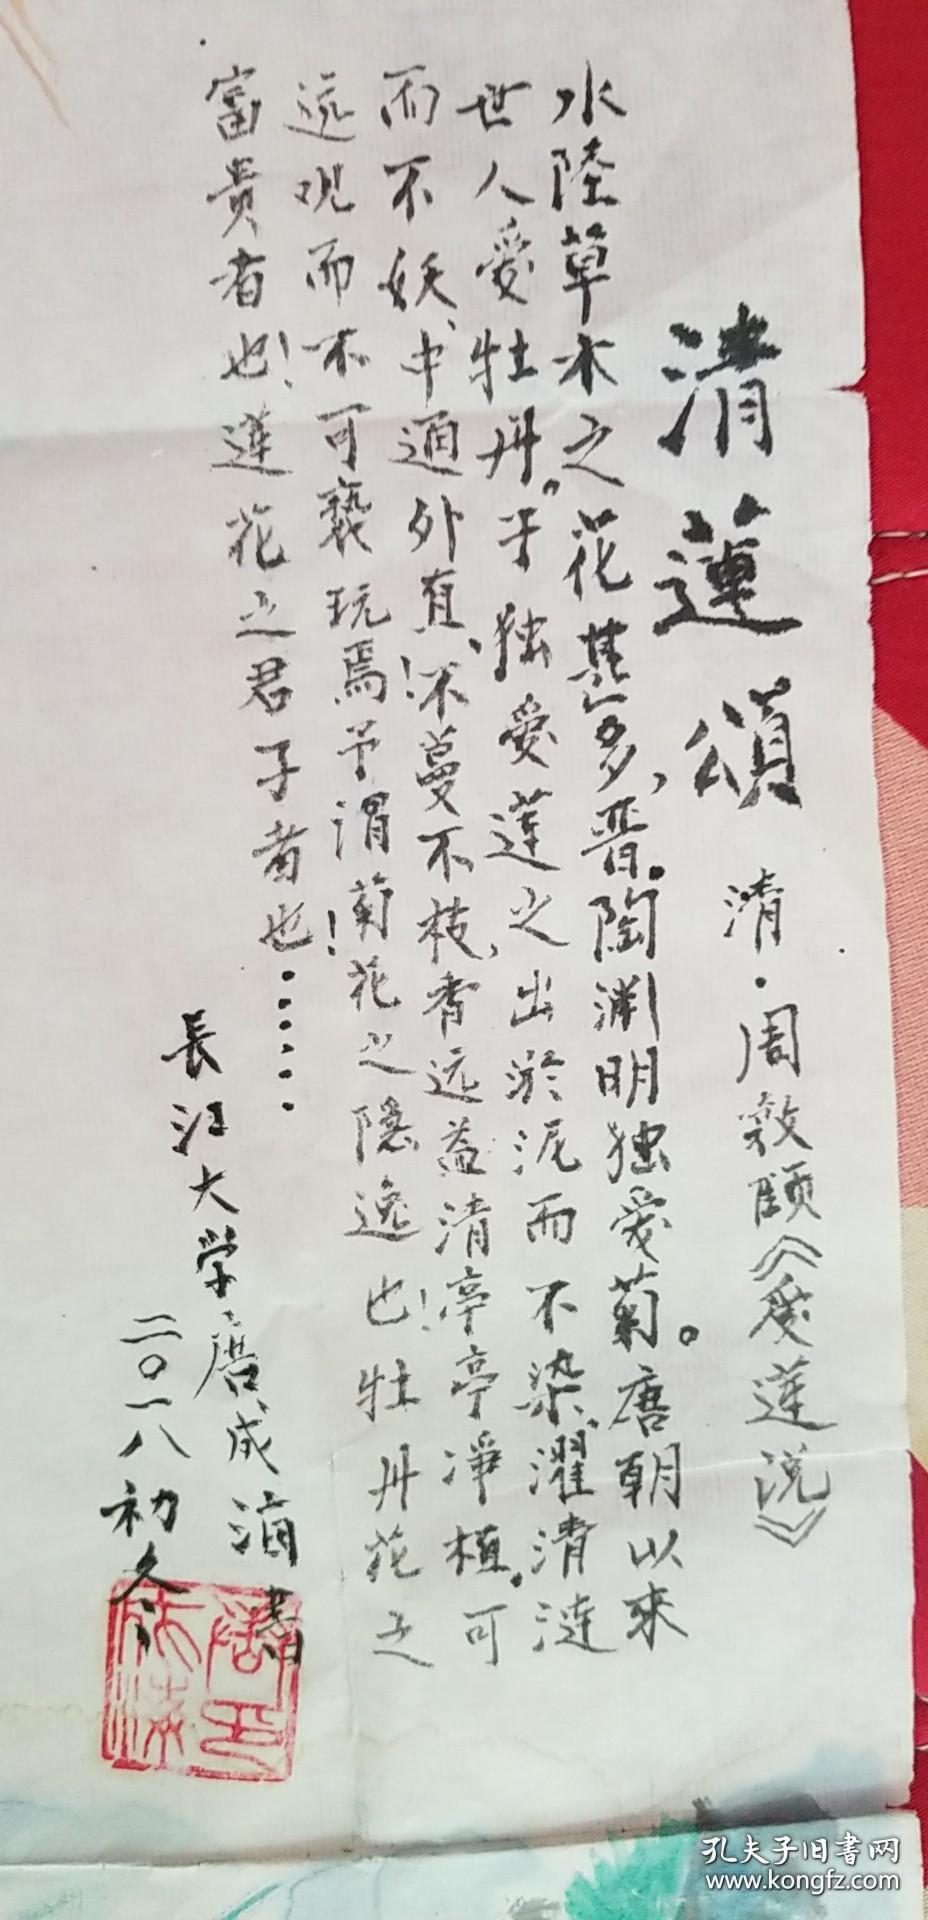 清蓮頌 清·周敦頤《愛蓮说》
水陸草木之花甚多，晋。陶渊明独爱菊。唐朝以來
世人爱牡丹。予独爱莲之出淤泥而不染、濯清涟
而不妖、中通外直、!不蔓不枝，香远益清亭亭净植。可
远观而不可亵玩焉!予谓菊花之隐逸也!牡丹花之
富贵者也!莲花之君子者也……
長江大学·唐成 書
二〇一八初冬
孔夫子旧书网
www.kongfz.com